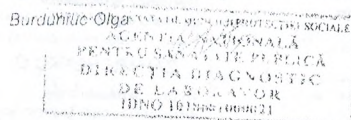 Burduniuc Olga
PROTECȚIEI SOCIALE
AGENȚIA NAȚIONALĂ
PENTRU SĂNĂTATE PUBLICĂ
DIRECȚIA DIAGNOSTIC
DE LABORATOR
IDNO